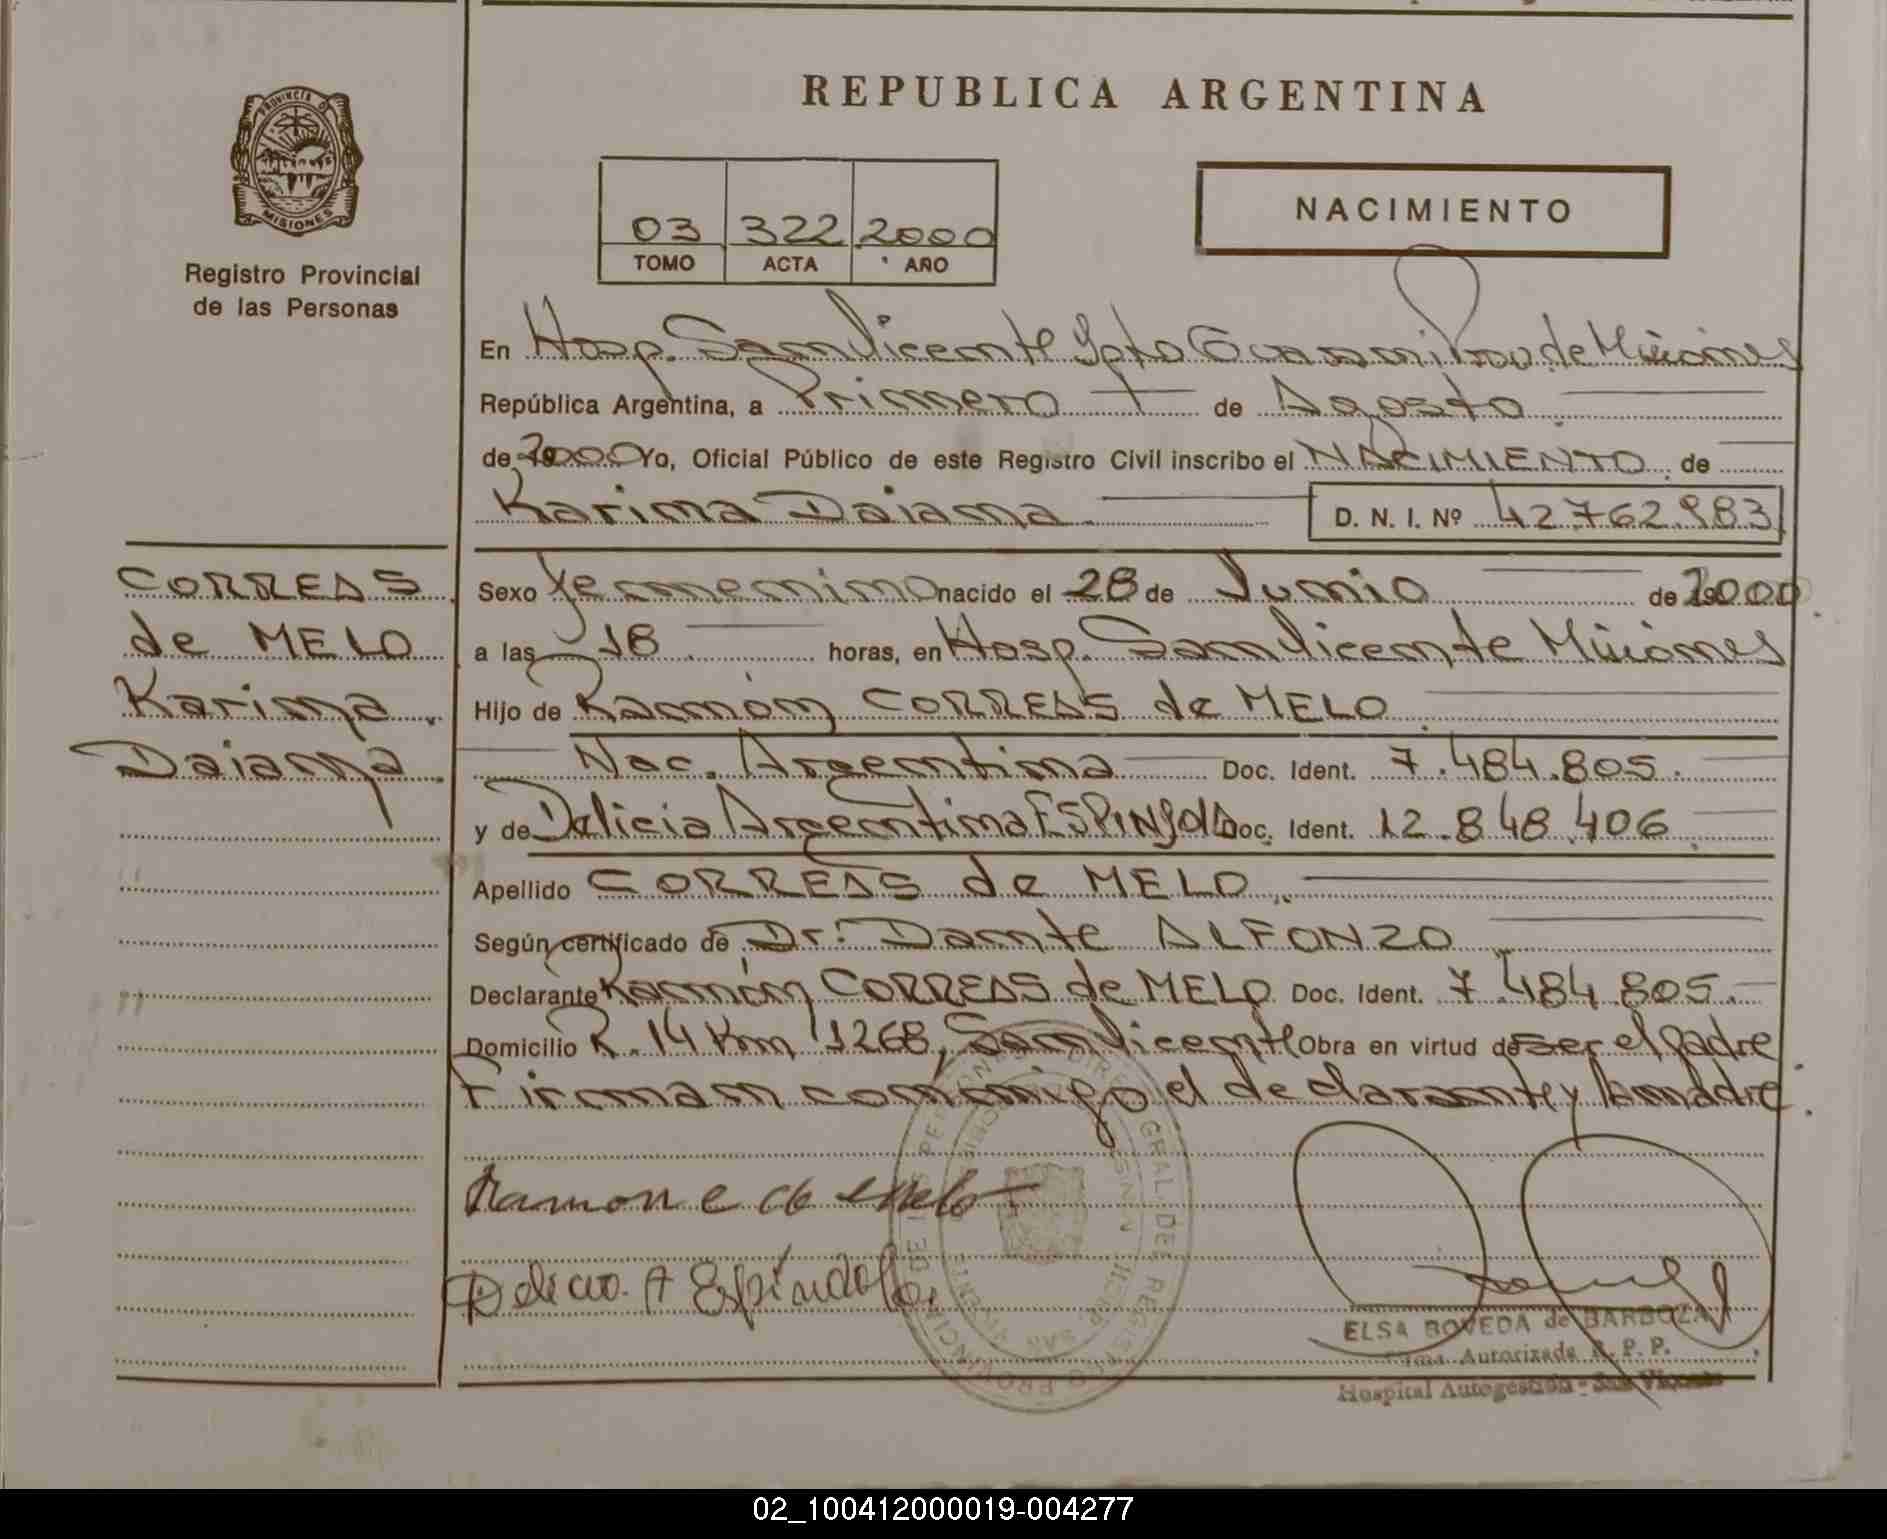 REPUBLICA ARGENTINA
PROVINCIA DE
MISIONES
Registro Provincial
de las Personas
03 322 2000
TOMO ACTA AÑO
NACIMIENTO
En Hosp. San Vicente Dpto Guarani Prov de Misiones
República Argentina, a Primero de Agosto
de 2000 Yo, Oficial Público de este Registro Civil inscribo el NACIMIENTO de
Karina Daiana D. N. I. Nº 42762983
CORREAS
de MELO
Karina
Daiana
Sexo Femenino nacido el 28 de Junio de 2000
a las 18 horas, en Hosp. San Vicente Misiones
Hijo de Ramón CORREAS de MELO
Nac. Argentina Doc. Ident. 7.484.805.
y de Delicia Argentina ESPINDOLA Doc. Ident. 12.848.406
Apellido CORREAS de MELO
Según certificado de Dr: Dante ALFONZO
Declarante Ramón CORREAS de MELO Doc. Ident. 7.484.805.
Domicilio R. 14 Km 1268, San Vicente Obra en virtud de ser el padre
Firman conmigo el declarante y la madre.
Ramon c de melo
Delicia. A Espindola
ELSA BOVEDA de BARBOZA
Firma Autorizada R. P. P.
Hospital Autogestión - San Vicente
02_100412000019-004277